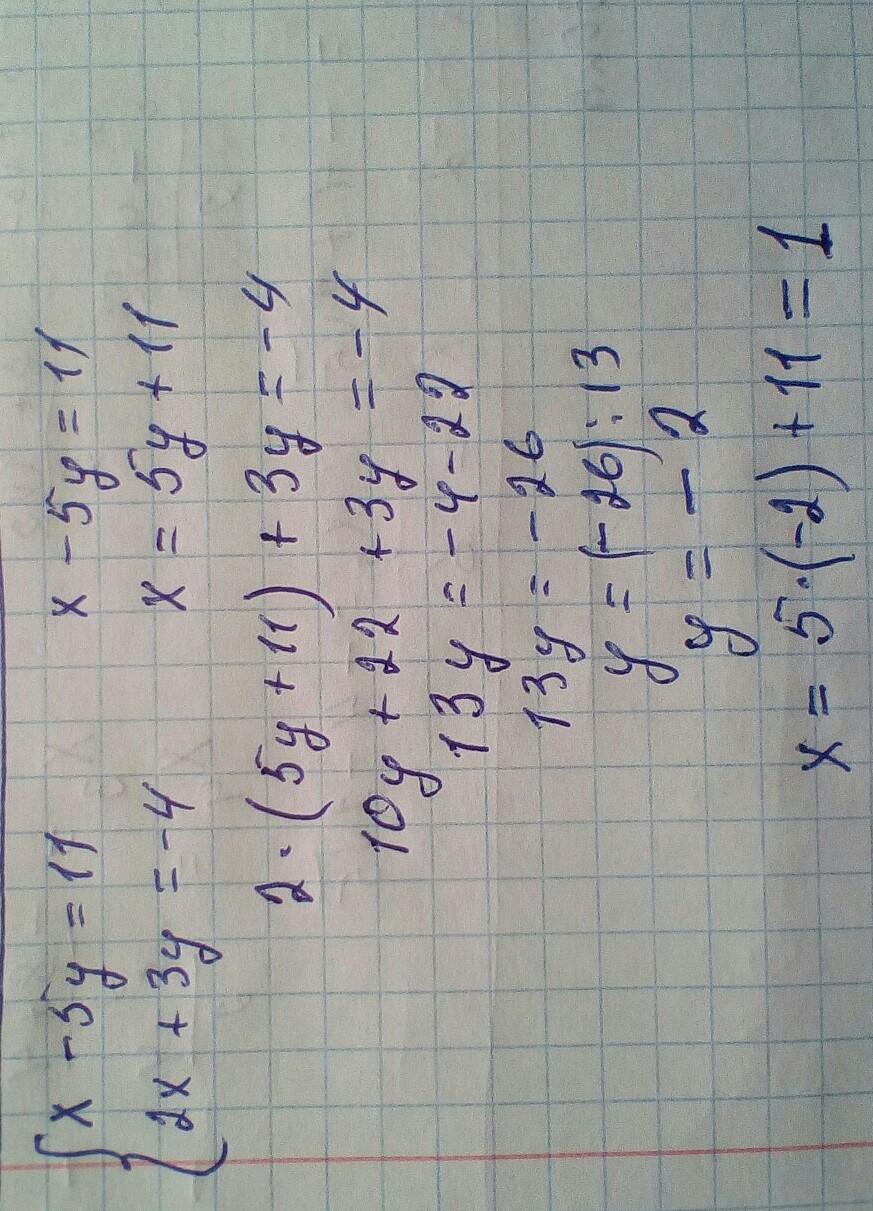 { x - 5y = 11   x - 5y = 11
2x + 3y = -4   x = 5y + 11
2·(5y + 11) + 3y = -4
10y + 22 + 3y = -4
13y = -4 - 22
13y = -26
y = (-26) : 13
y = -2
x = 5·(-2) + 11 = 1